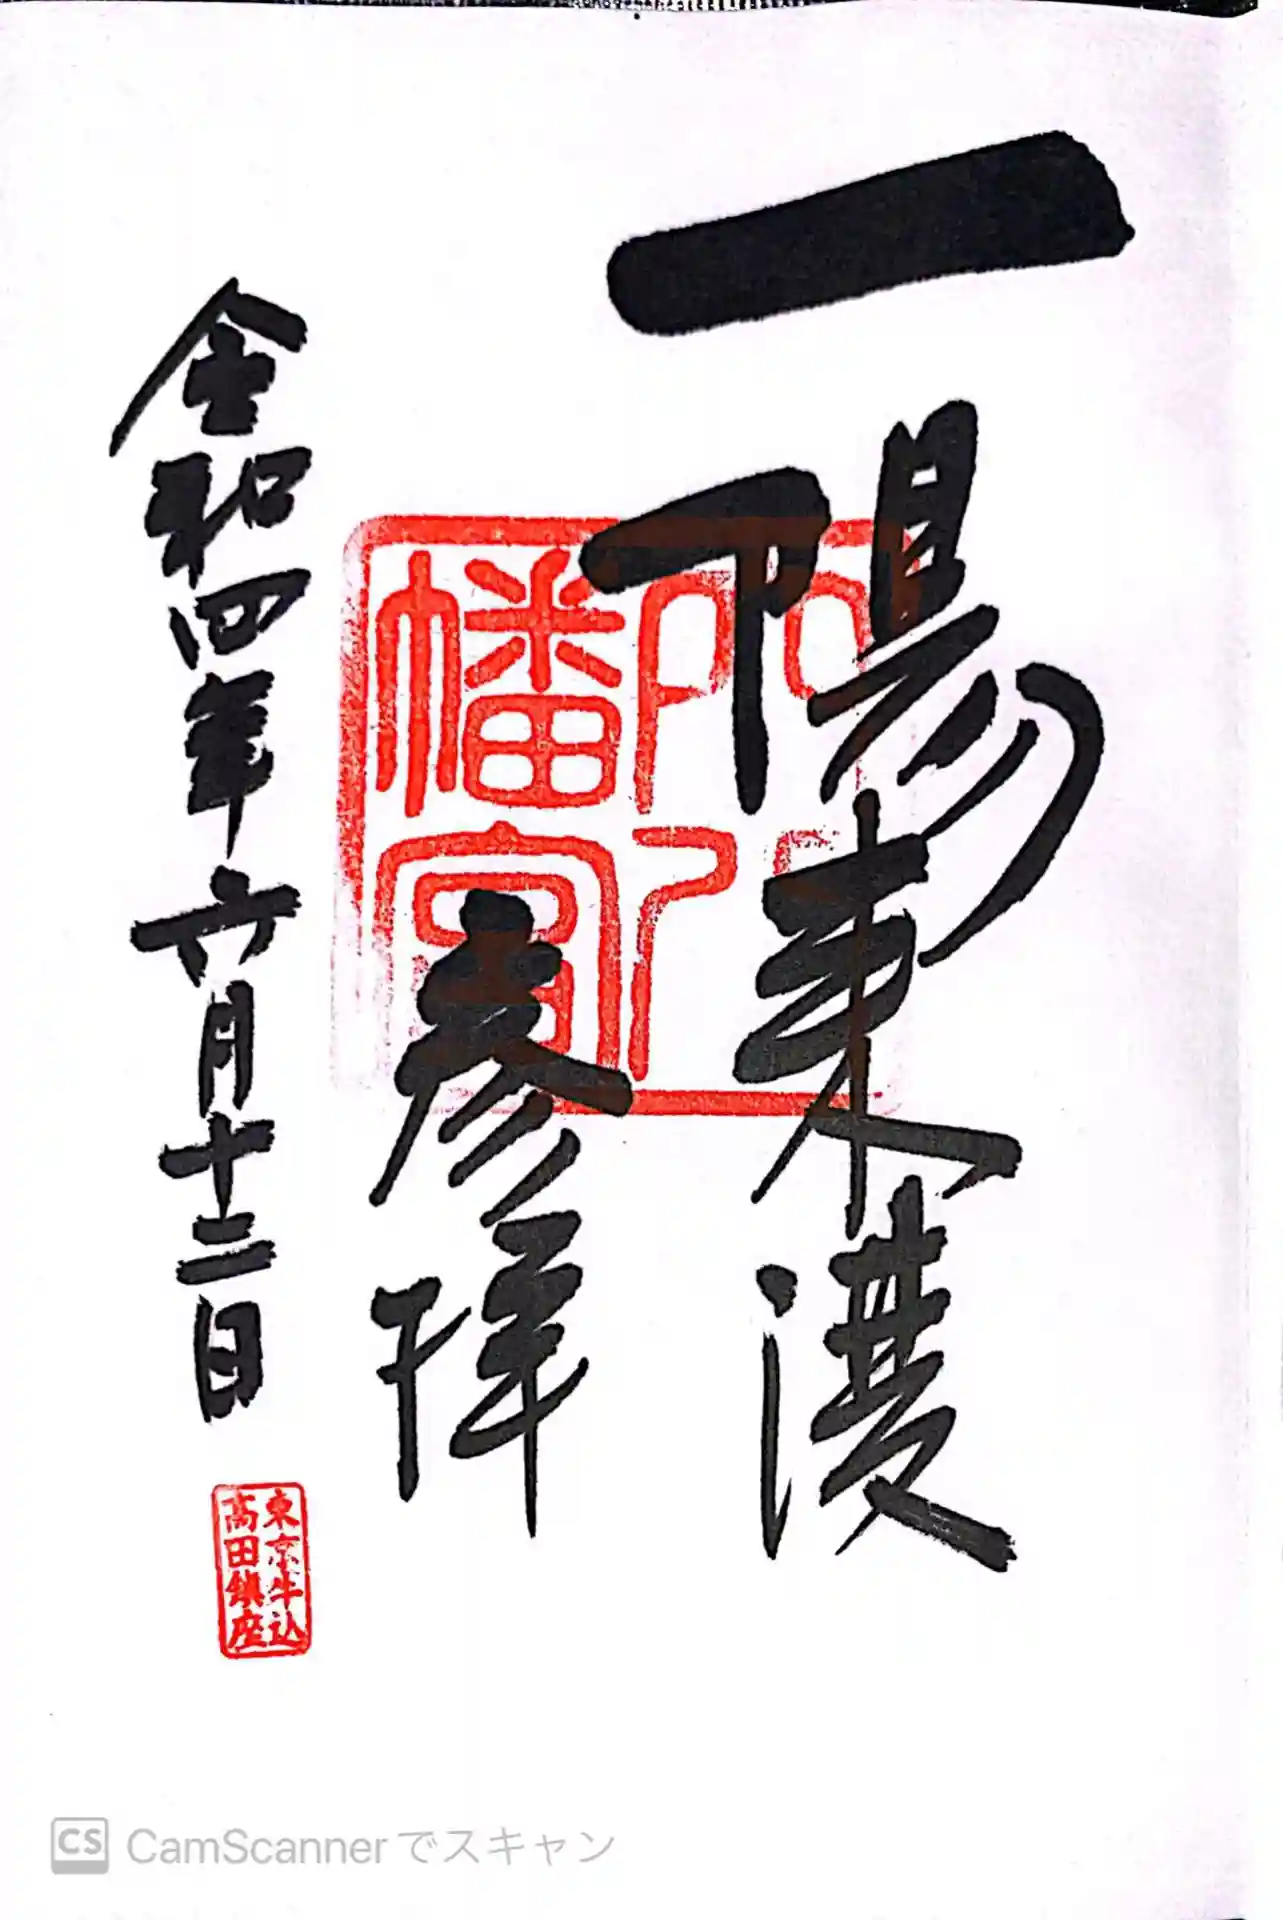 一陽来復
参拝
令和四年六月十二日
穴八幡宮
東京牛込
高田鎮座
CS CamScannerでスキャン